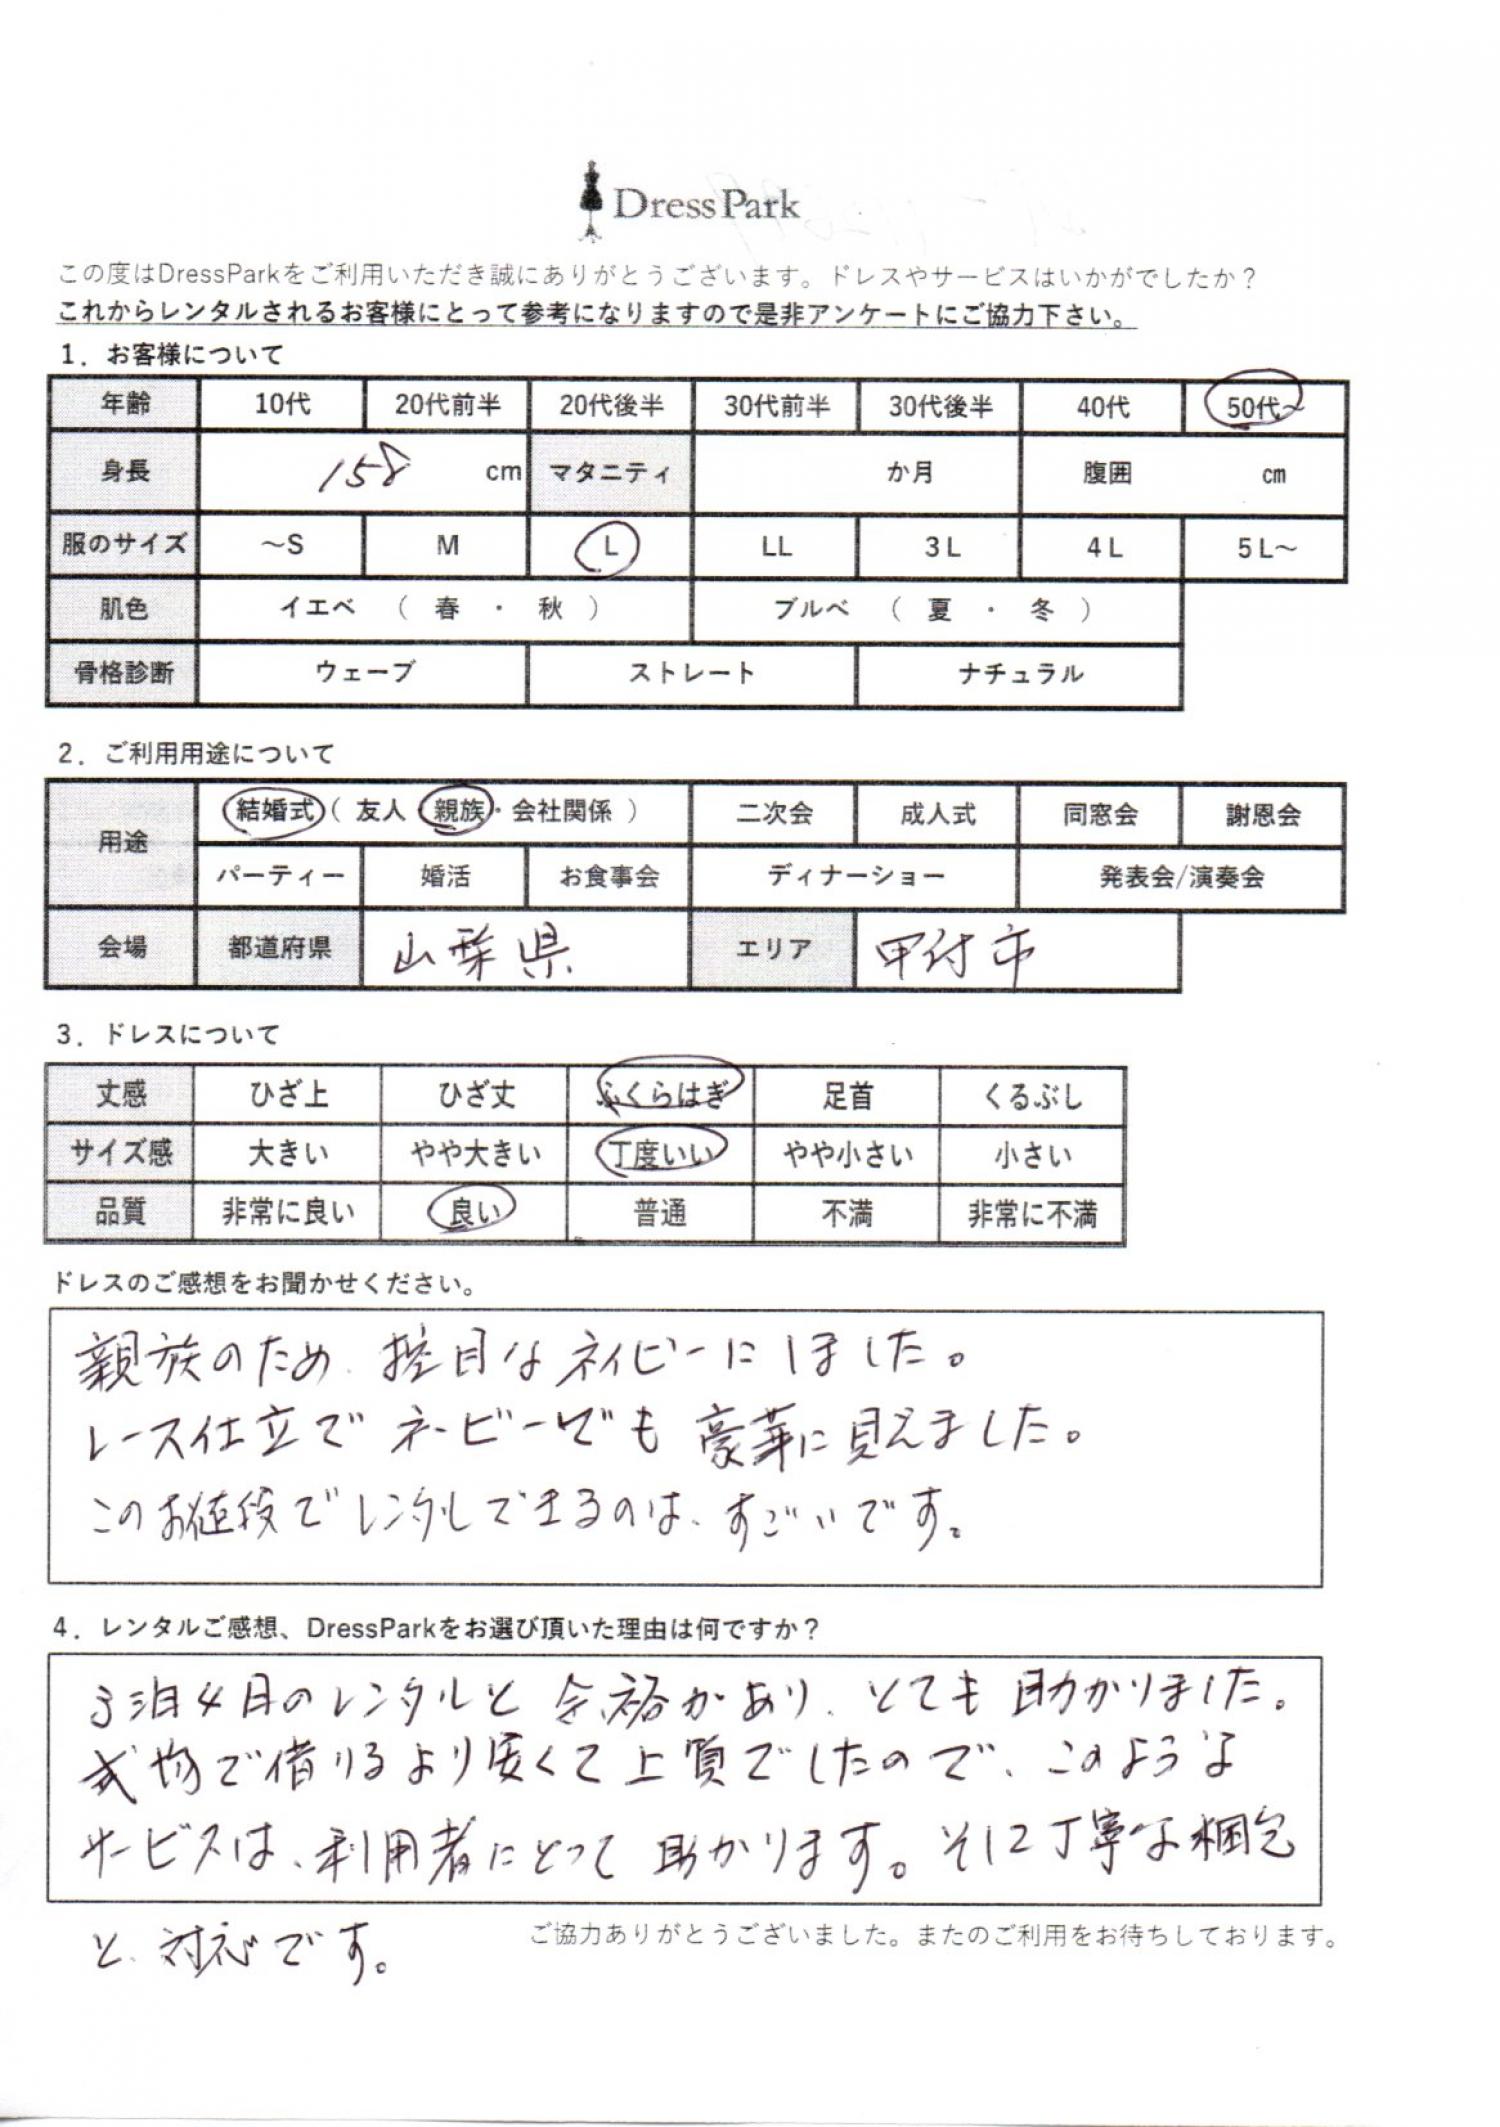 DressPark
この度はDressParkをご利用いただき誠にありがとうございます。ドレスやサービスはいかがでしたか？
これからレンタルされるお客様にとって参考になりますので是非アンケートにご協力下さい。
1．お客様について
年齢 10代 20代前半 20代後半 30代前半 30代後半 40代 50代～
身長 158 cm マタニティ か月 腹囲 cm
服のサイズ ～S M L LL 3L 4L 5L～
肌色 イエベ （ 春 ・ 秋 ） ブルベ （ 夏 ・ 冬 ）
骨格診断 ウェーブ ストレート ナチュラル
2．ご利用用途について
用途 結婚式（ 友人・親族・会社関係 ） 二次会 成人式 同窓会 謝恩会
パーティー 婚活 お食事会 ディナーショー 発表会/演奏会
会場 都道府県 山梨県 エリア 甲府市
3．ドレスについて
丈感 ひざ上 ひざ丈 ふくらはぎ 足首 くるぶし
サイズ感 大きい やや大きい 丁度いい やや小さい 小さい
品質 非常に良い 良い 普通 不満 非常に不満
ドレスのご感想をお聞かせください。
親族のため、控目なネイビーにしました。
レース仕立でネービーでも豪華に見えました。
このお値段でレンタルできるのは、すごいです。
4．レンタルご感想、DressParkをお選び頂いた理由は何ですか？
3泊4日のレンタルと余裕があり、とても助かりました。
式場で借りるより安くて上質でしたので、このような
サービスは、利用者にとって助かります。そして丁寧な梱包
と、対応です。
ご協力ありがとうございました。またのご利用をお待ちしております。